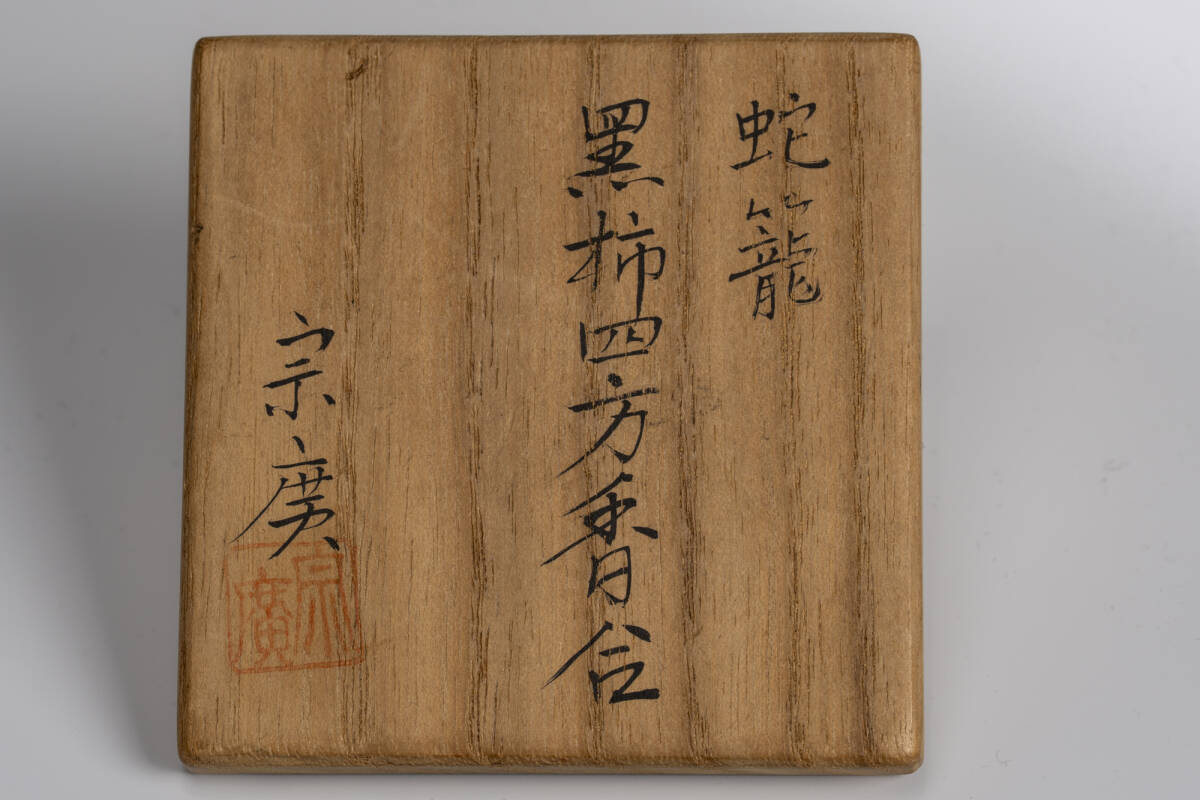 蛇籠
黒柿四方香合
宗廣
宗廣